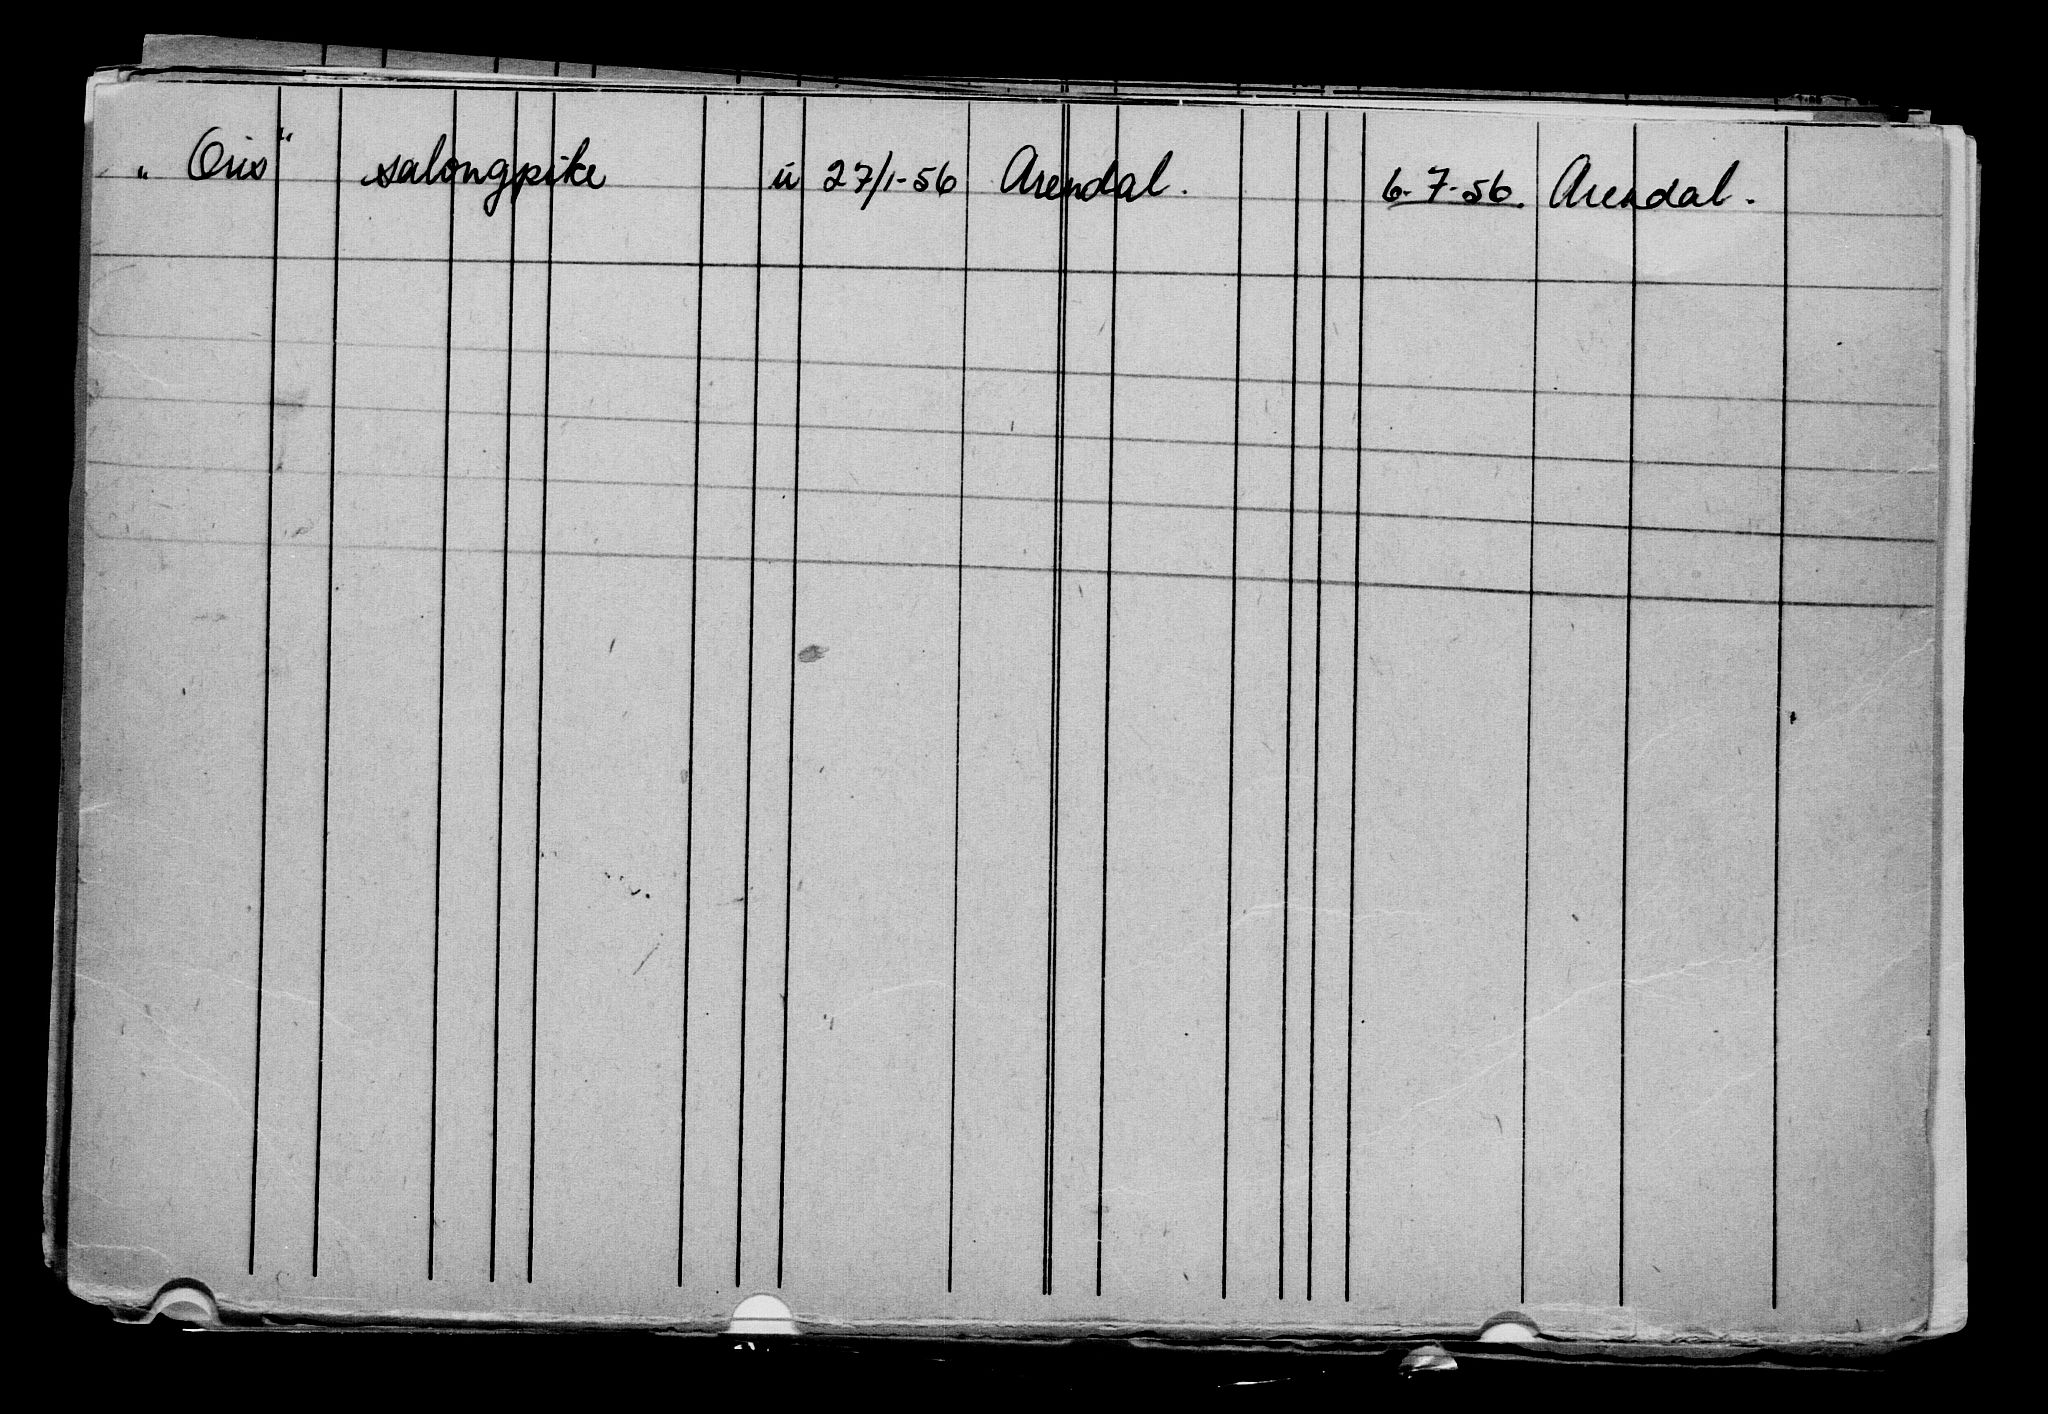 „ Oris“ salongpike u 27/1-56 Arendal. 6-7-56. Arendal.